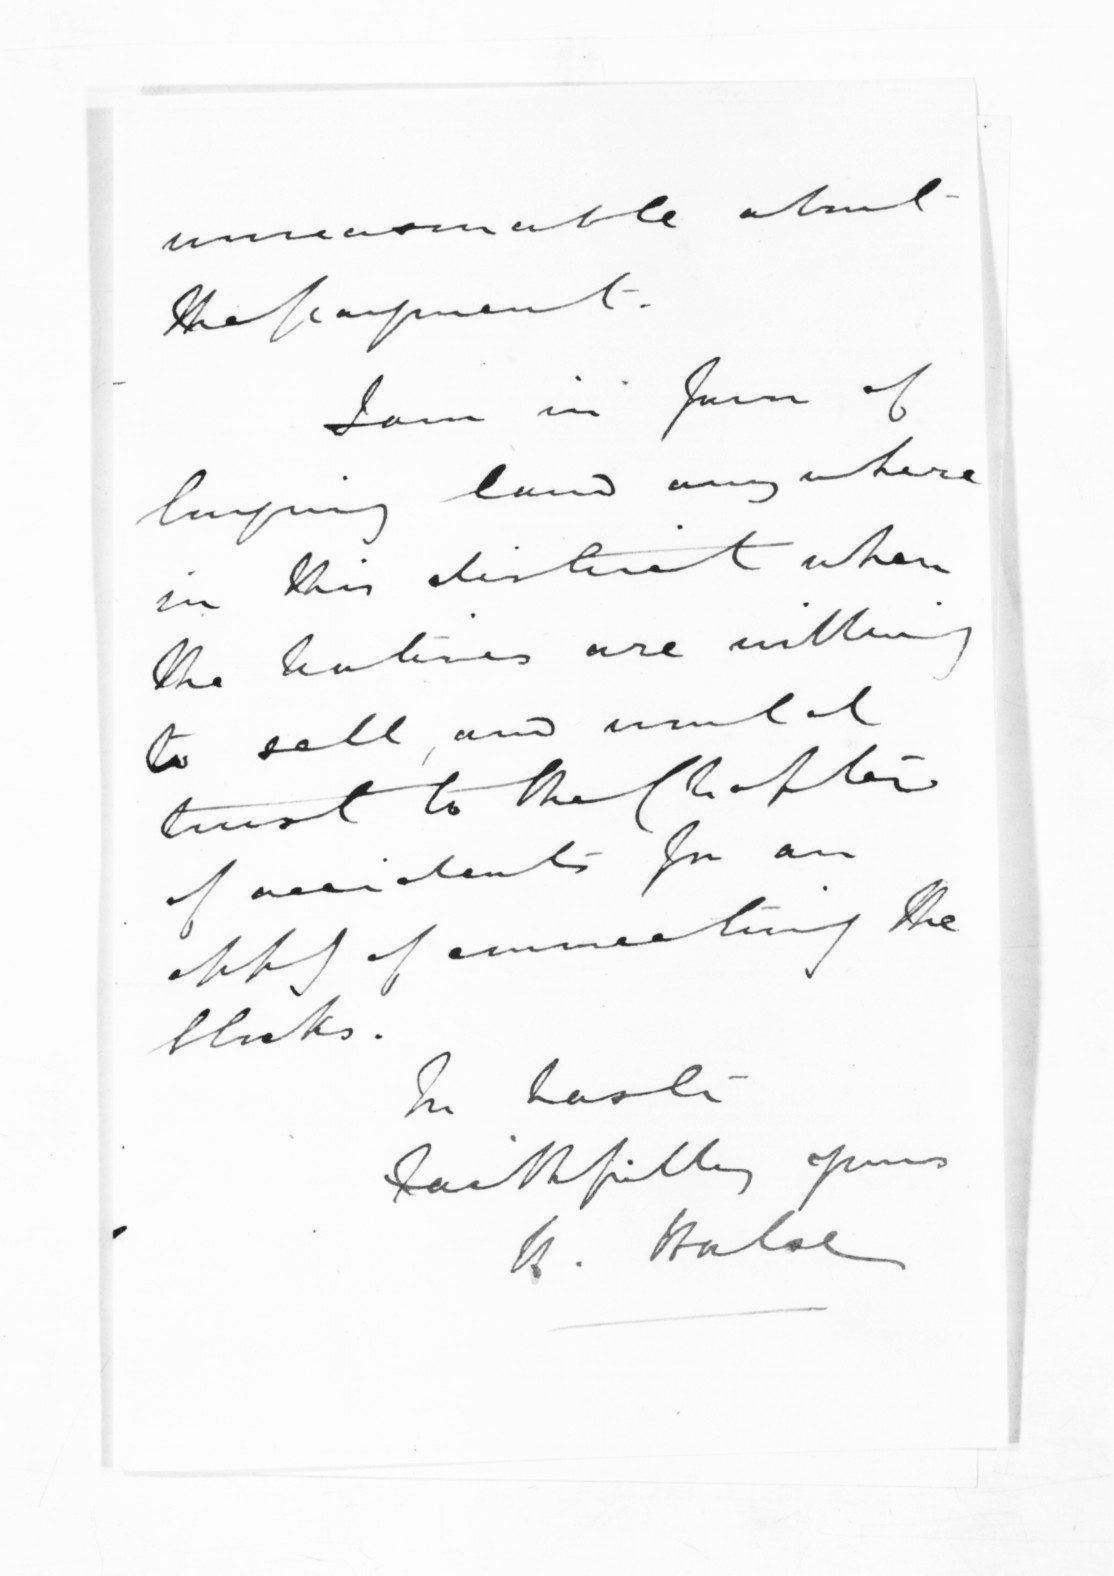 unreasonable about
the payment.
I am in favr of
buying land anywhere
in this district when
the natives are willing
to sell, and would
trust to the Chapter
of accidents for an
oppy of connecting the
blocks.
In haste
Faithfully yours
H. Halse